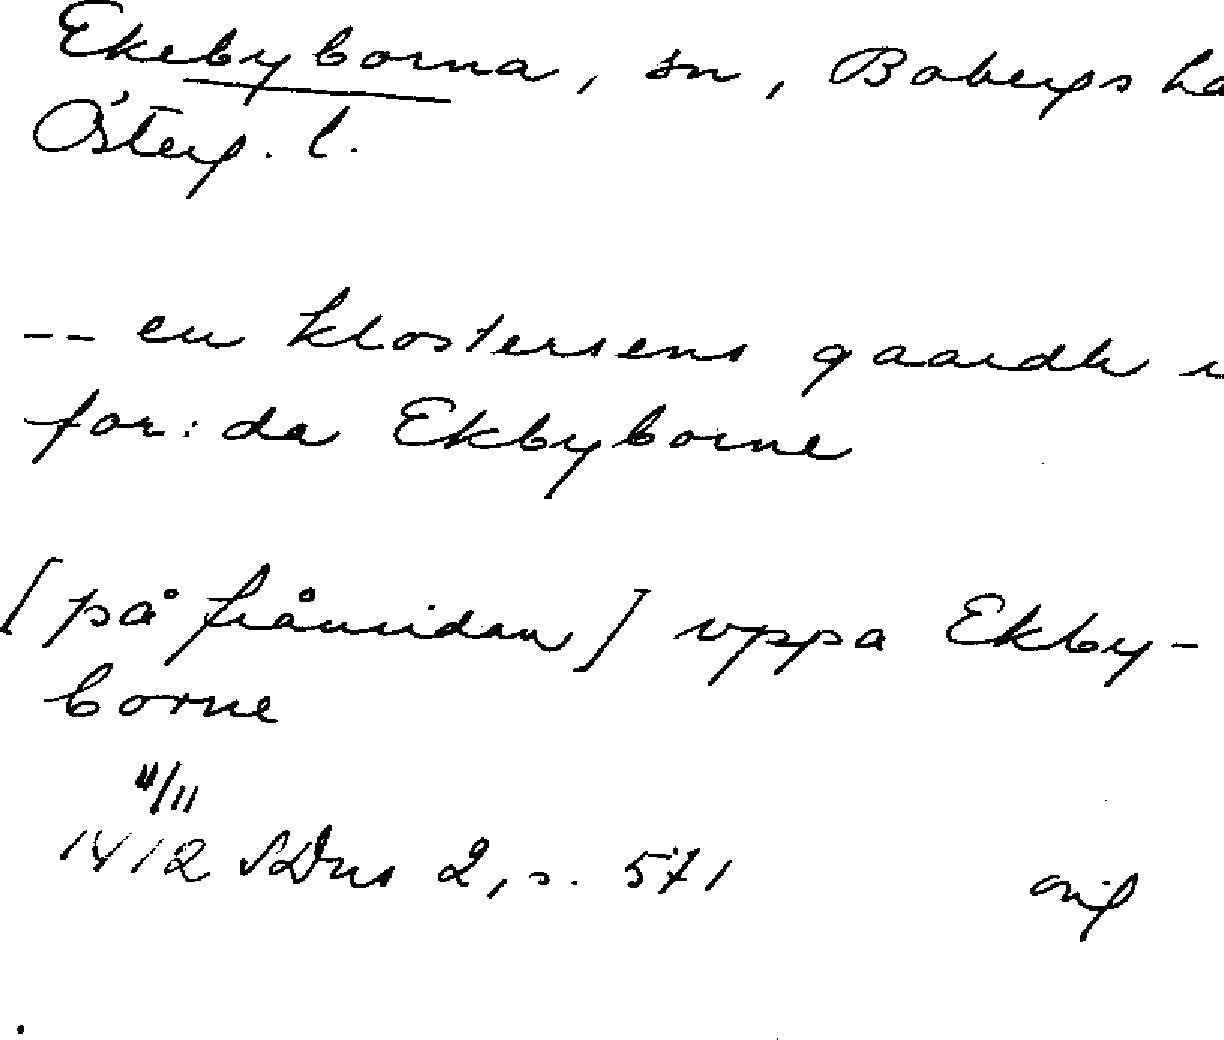 Ekebyborna, sn, Bobergs ha
Österg. l.
-- en klostersens gaardh i
for: da Ekbyborne
[på frånsidan] uppa Ekby-
borne
11/11
1412 SDns 2, s. 571 orig